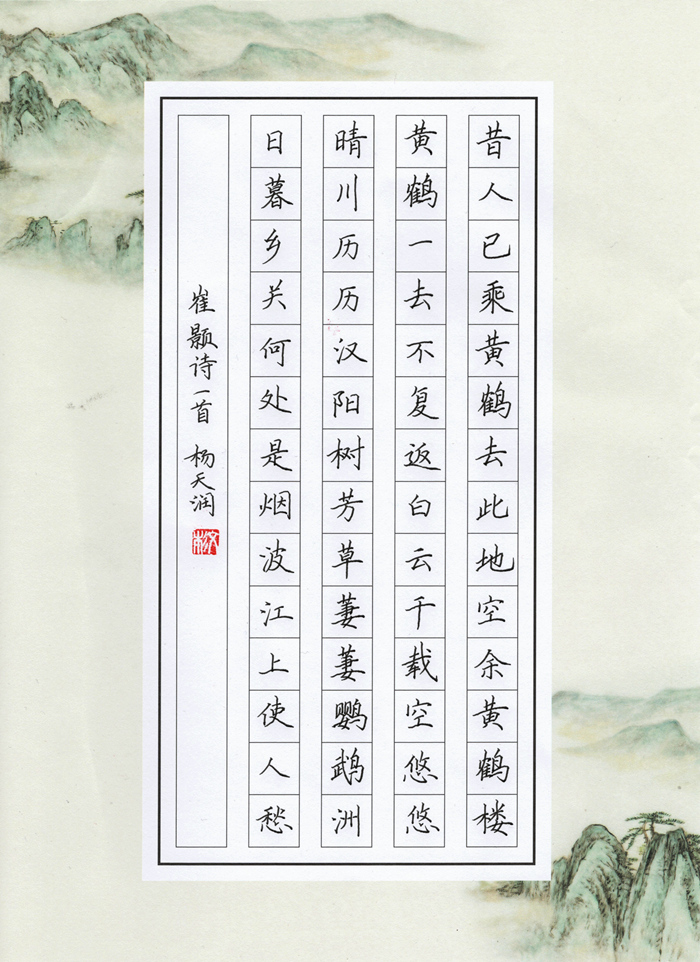 昔人已乘黄鹤去此地空余黄鹤楼
黄鹤一去不复返白云千载空悠悠
晴川历历汉阳树芳草萋萋鹦鹉洲
日暮乡关何处是烟波江上使人愁
崔颢诗一首 杨天润